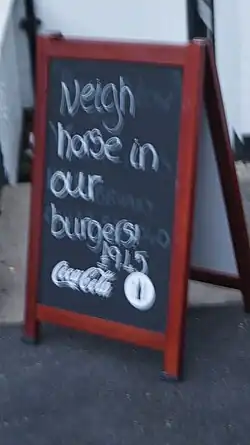 Neigh
horse in
our
burgers!
Coca-Cola